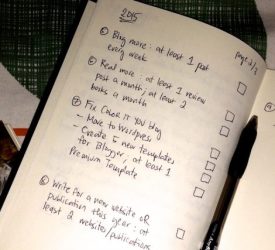 2015
⑤ Blog more: at least 1 post
every week
⑥ Read more: at least 1 review
post a month; at least 2
books a month
⑦ Fix Color It You blog
- Move to Wordpress
- Create 5 new templates
for Blogger; at least 1
Premium Template
⑧ Write for a new website OR
publication this year: at
least 2 websites/publications